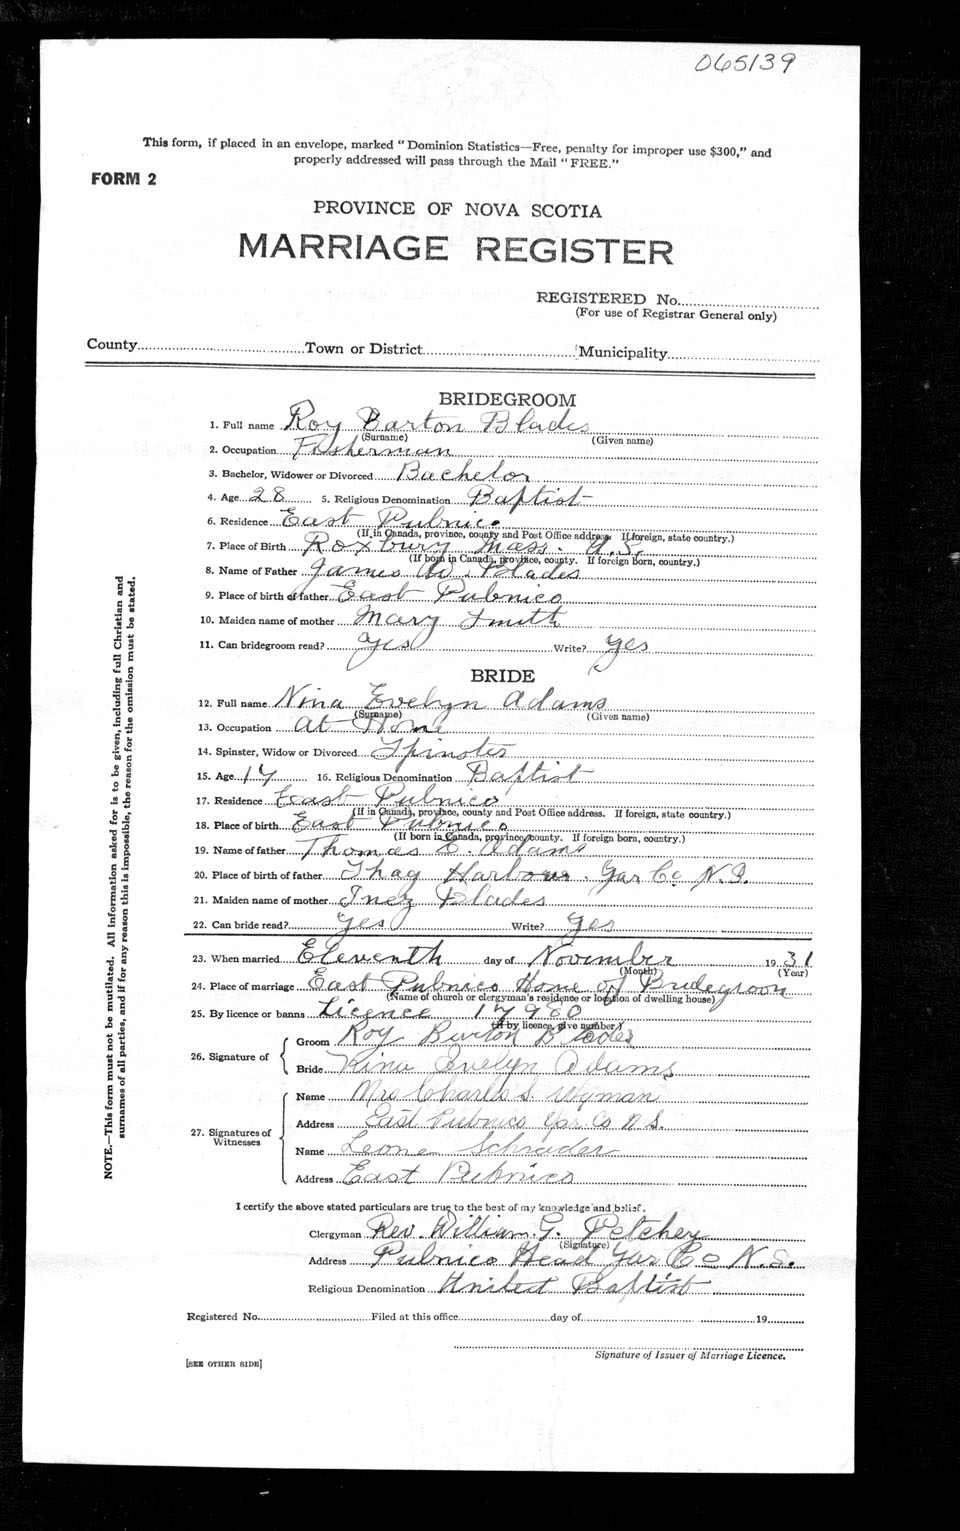 065139
This form, if placed in an envelope, marked "Dominion Statistics—Free, penalty for improper use $300," and
properly addressed will pass through the Mail "FREE."
FORM 2
PROVINCE OF NOVA SCOTIA
MARRIAGE REGISTER
REGISTERED No.
(For use of Registrar General only)
County Town or District Municipality
BRIDEGROOM
1. Full name Roy Barton Blades
(Surname) (Given name)
2. Occupation Fisherman
3. Bachelor, Widower or Divorced Bachelor
4. Age 28 5. Religious Denomination Baptist
6. Residence East Pubnico
(If in Canada, province, county and Post Office address. If foreign, state country.)
7. Place of Birth Roxbury Mass. U.S.
(If born in Canada, province, county. If foreign born, country.)
8. Name of Father James W. Blades
9. Place of birth of father East Pubnico
10. Maiden name of mother Mary Smith
11. Can bridegroom read? yes Write? yes
BRIDE
12. Full name Nina Evelyn Adams
(Surname) (Given name)
13. Occupation At Home
14. Spinster, Widow or Divorced Spinster
15. Age 17 16. Religious Denomination Baptist
17. Residence East Pubnico
(If in Canada, province, county and Post Office address. If foreign, state country.)
18. Place of birth East Pubnico
(If born in Canada, province, county. If foreign born, country.)
19. Name of father Thomas E. Adams
20. Place of birth of father Shag Harbour. Yar Co N.S.
21. Maiden name of mother Inez Blades
22. Can bride read? yes Write? yes
23. When married Eleventh day of November 1931
(Month) (Year)
24. Place of marriage East Pubnico Home of Bridegroom
(Name of church or clergyman's residence or location of dwelling house)
25. By licence or banns Licence 17980
(If by licence, give number)
26. Signature of
Groom Roy Barton Blades
Bride Nina Evelyn Adams
27. Signatures of Witnesses
Name Mrs Charles S. Wyman
Address East Pubnico Yar. Co N.S.
Name Leone Schrader
Address East Pubnico
I certify the above stated particulars are true to the best of my knowledge and belief.
Clergyman Rev. William. G. Petchey
(Signature)
Address Pubnico Head Yar Co N.S.
Religious Denomination United Baptist
Registered No. Filed at this office day of 19
Signature of Issuer of Marriage Licence.
[SEE OTHER SIDE]
NOTE.—This form must not be mutilated. All information asked for is to be given, including full Christian and
surnames of all parties, and if for any reason this is impossible, the reason for the omission must be stated.